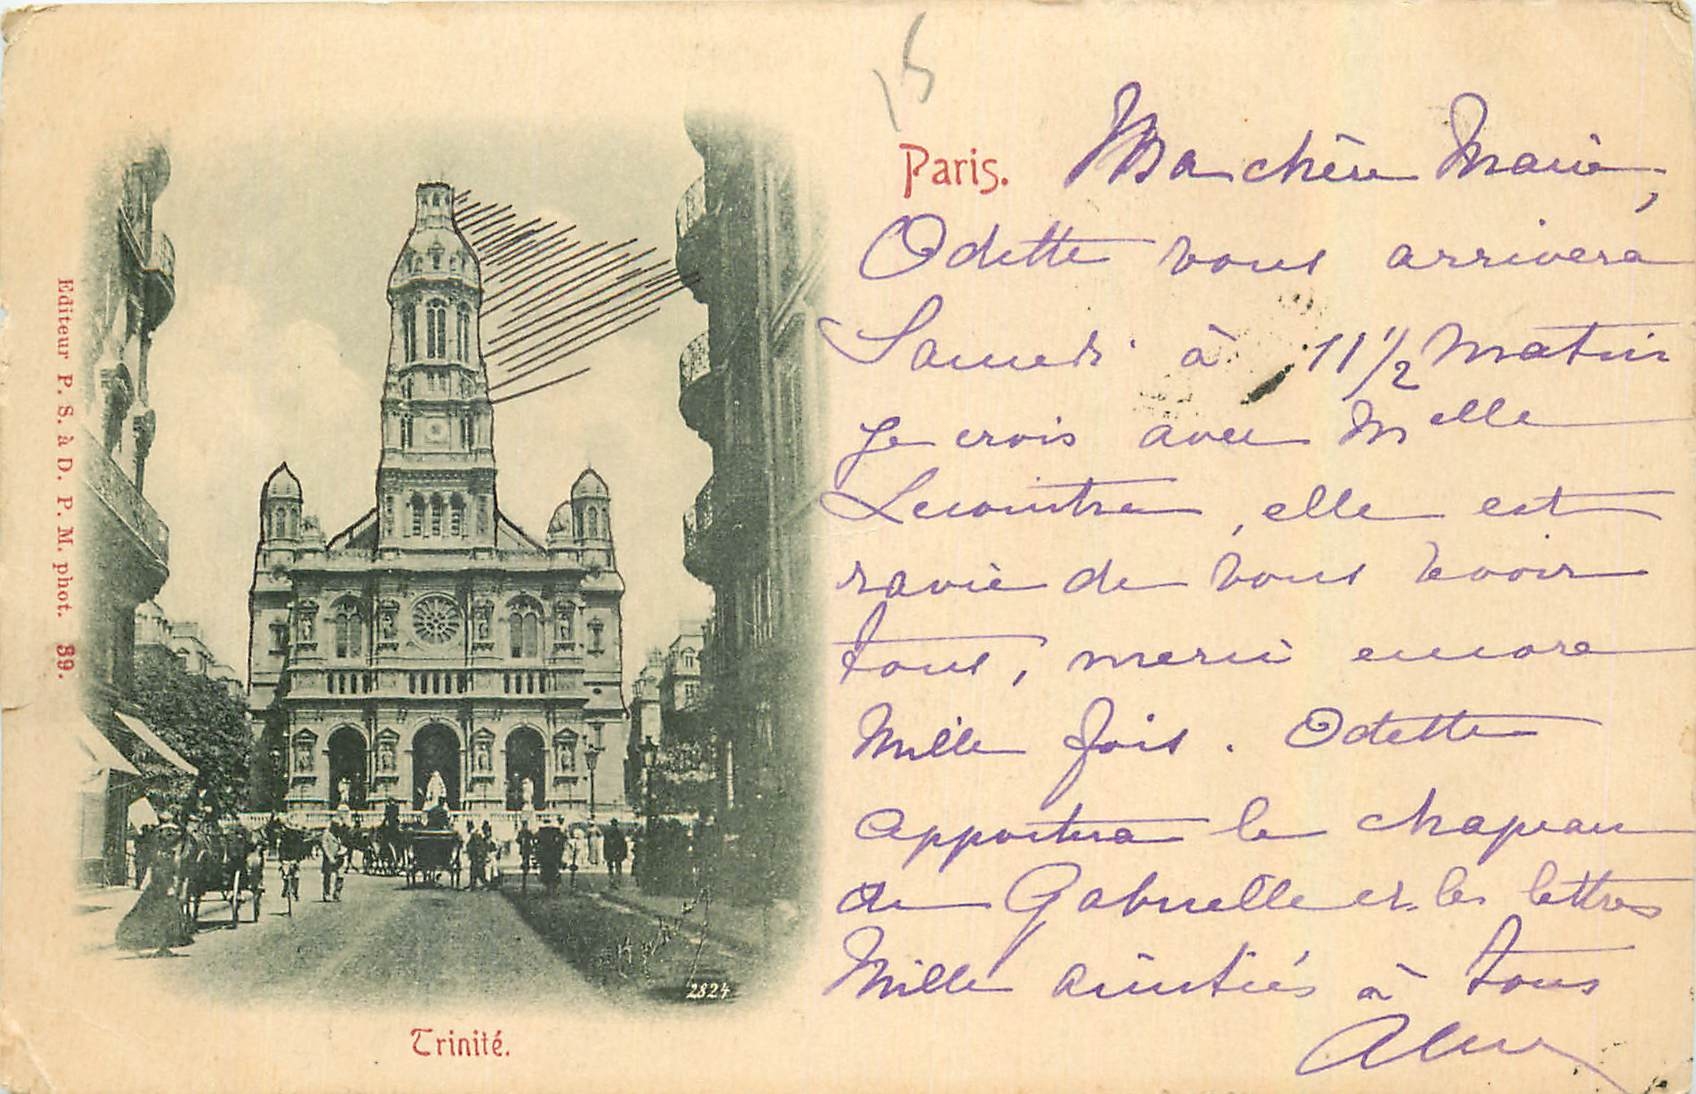 15
Paris.
Ma chère Marie,
Odette vous arrivera
Samedi à 11 1/2 matin
je crois avec Melle
Lecointre, elle est
ravie de vous revoir
tous, merci encore
Mille fois. Odette
apportera le chapeau
de Gabrielle et les lettres
Mille amitiés à tous
Editeur P. S. à D. P. M. phot. 39.
2824
Trinité.